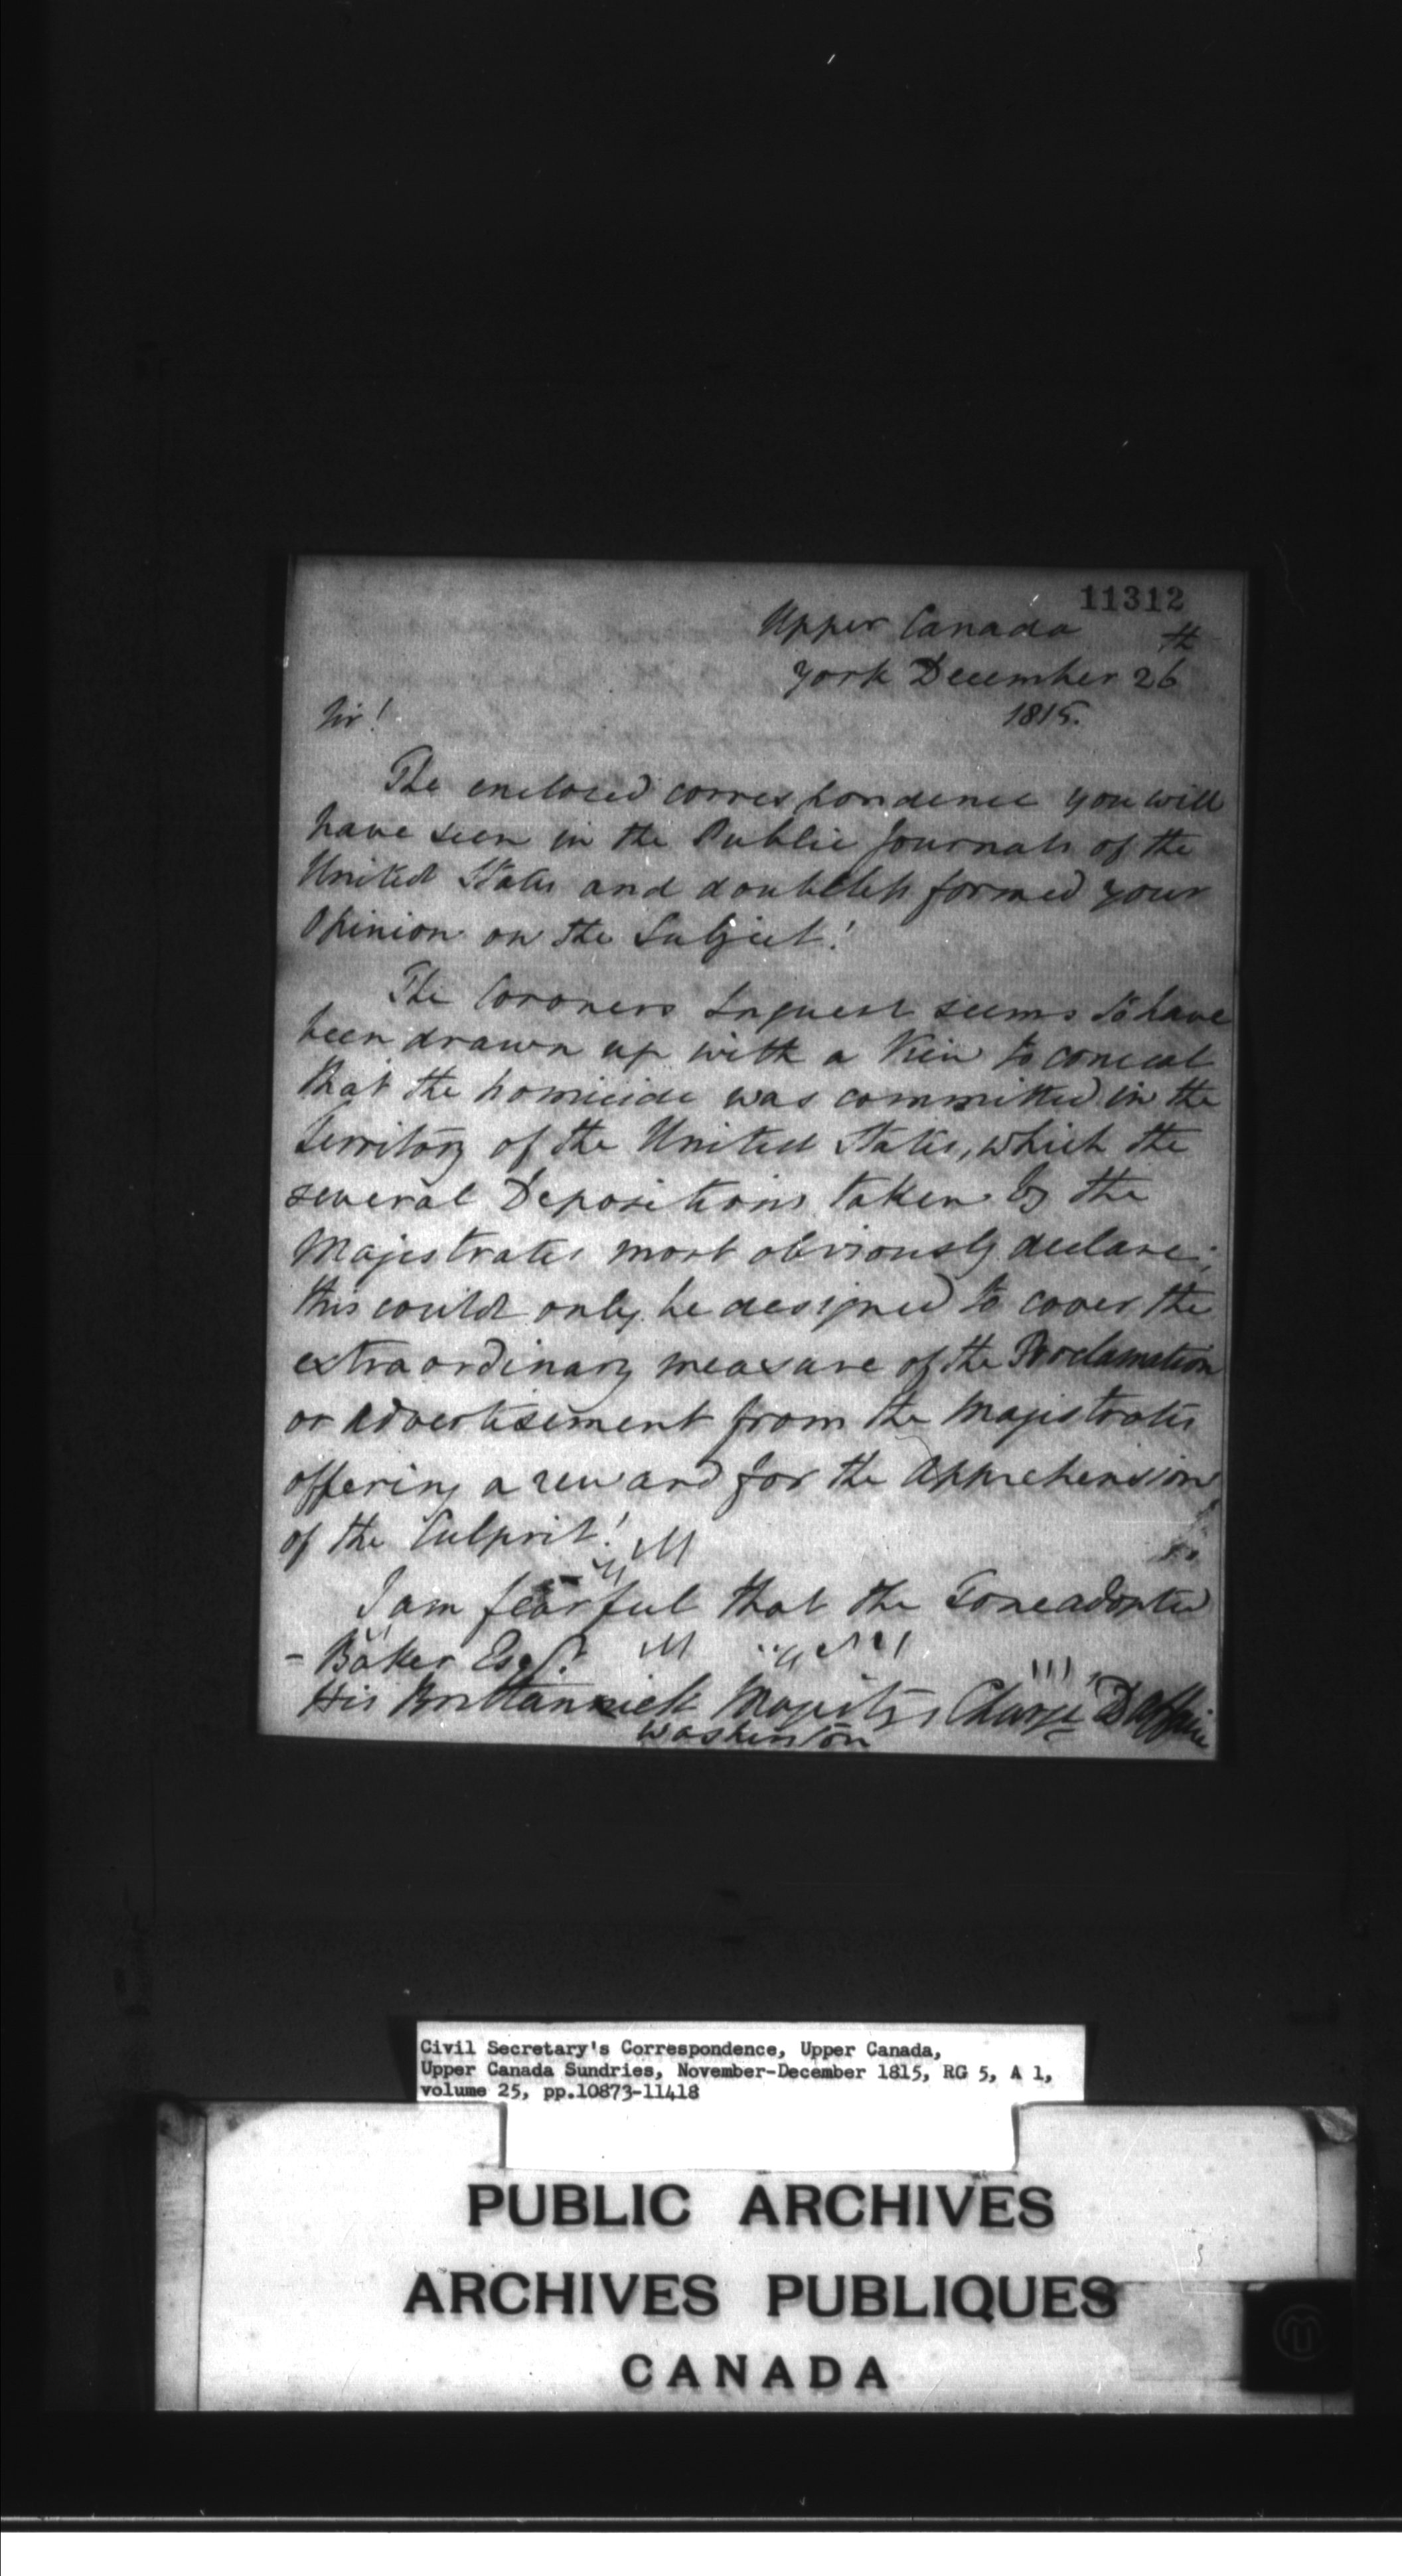 11312
Upper Canada
York December 26th
1815.
Sir!
The enclosed correspondence you will
have seen in the Public Journals of the
United States and doubtless formed your
Opinion on the Subject!
The Coroners Inquest seems to have
been drawn up with a View to conceal
that the homicide was committed in the
Territory of the United States, which the
several Depositions taken by the
Majestrates most obviously declare;
this could only be designed to cover the
extraordinary measure of the Proclamation
or Advertisement from the Majestrates
offering a reward for the Apprehension
of the Culprit!
I am fearful that the Tone adopted
- Baker Esqr.
His Brittannick Majestys Charge D Affaire
Washinton
Civil Secretary's Correspondence, Upper Canada,
Upper Canada Sundries, November-December 1815, RG 5, A 1,
volume 25, pp.10873-11418
PUBLIC ARCHIVES
ARCHIVES PUBLIQUES
CANADA